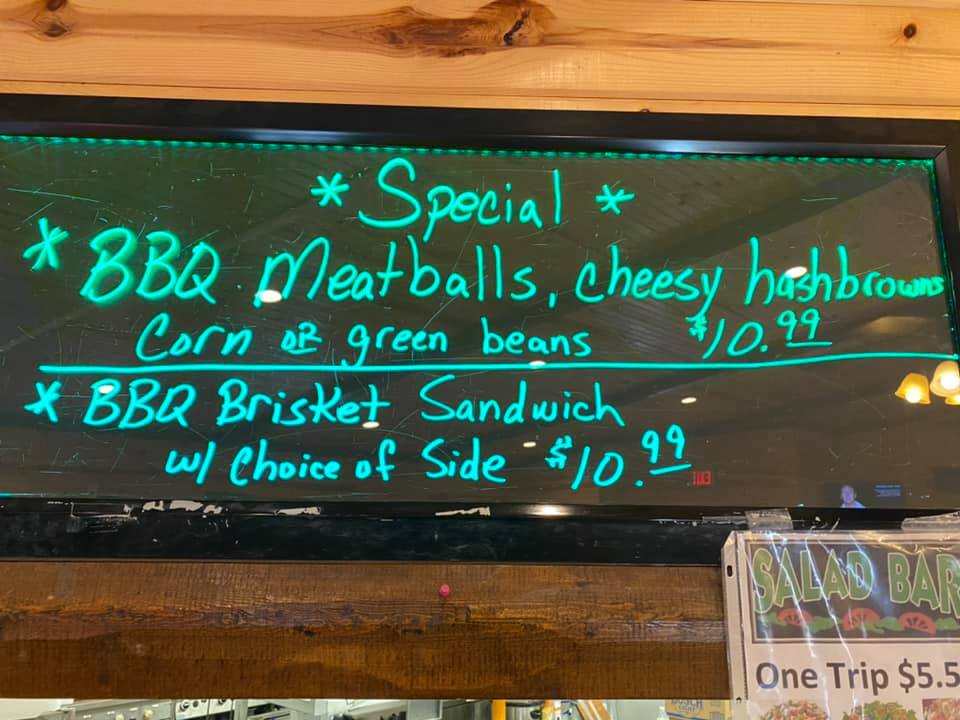 * Special *
* BBQ Meatballs, cheesy hashbrowns
Corn or green beans $10.99
* BBQ Brisket Sandwich
w/ Choice of Side $10.99
EXIT
SALAD BAR
One Trip $5.5